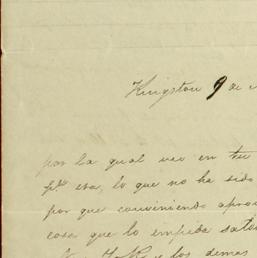 Kingston 9 de
por la qual veo en tu
pta esa, lo que no ha sido
por que conviniendo
cosa que lo empida
y los demas